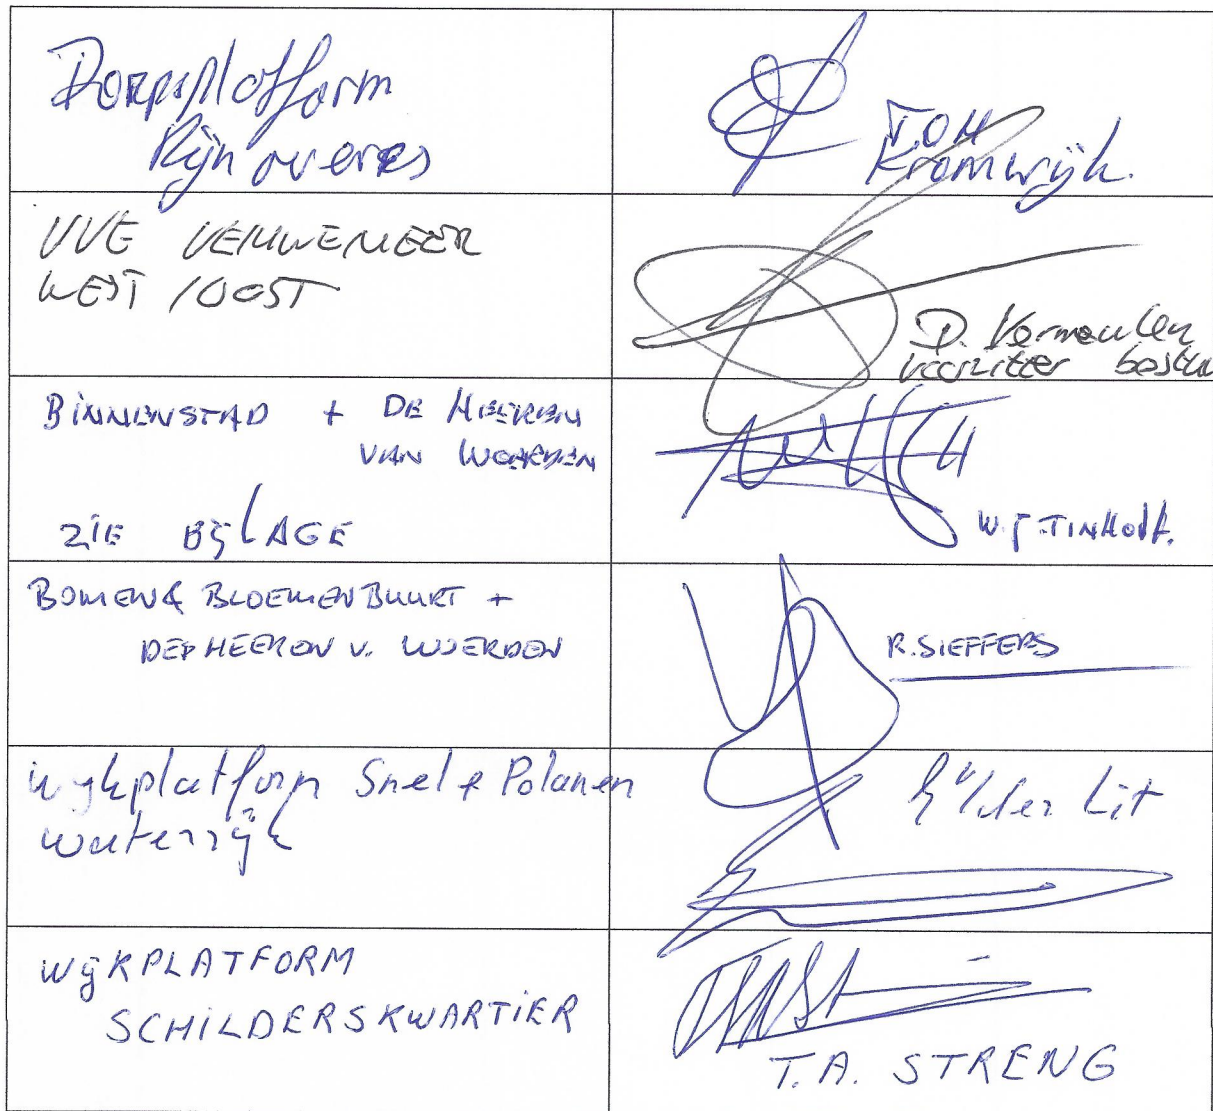 Dorpsplatform
Rijnoevers
TOM
Kromwijk.
VVE VENUWEMEER
WEST / OOST
D. Vermeulen
voorzitter bestuu
BINNENSTAD + DE HEEREN
VAN WOERDEN
ZIE BIJLAGE
W.J. TINHOLT.
BOMEN & BLOEMENBUURT +
DE HEEREN V. WOERDEN
R. SIEFFERS
Wijkplatform Snel & Polanen
Waterrijk
v/der Lit
WIJKPLATFORM
SCHILDERSKWARTIER
T.A. STRENG